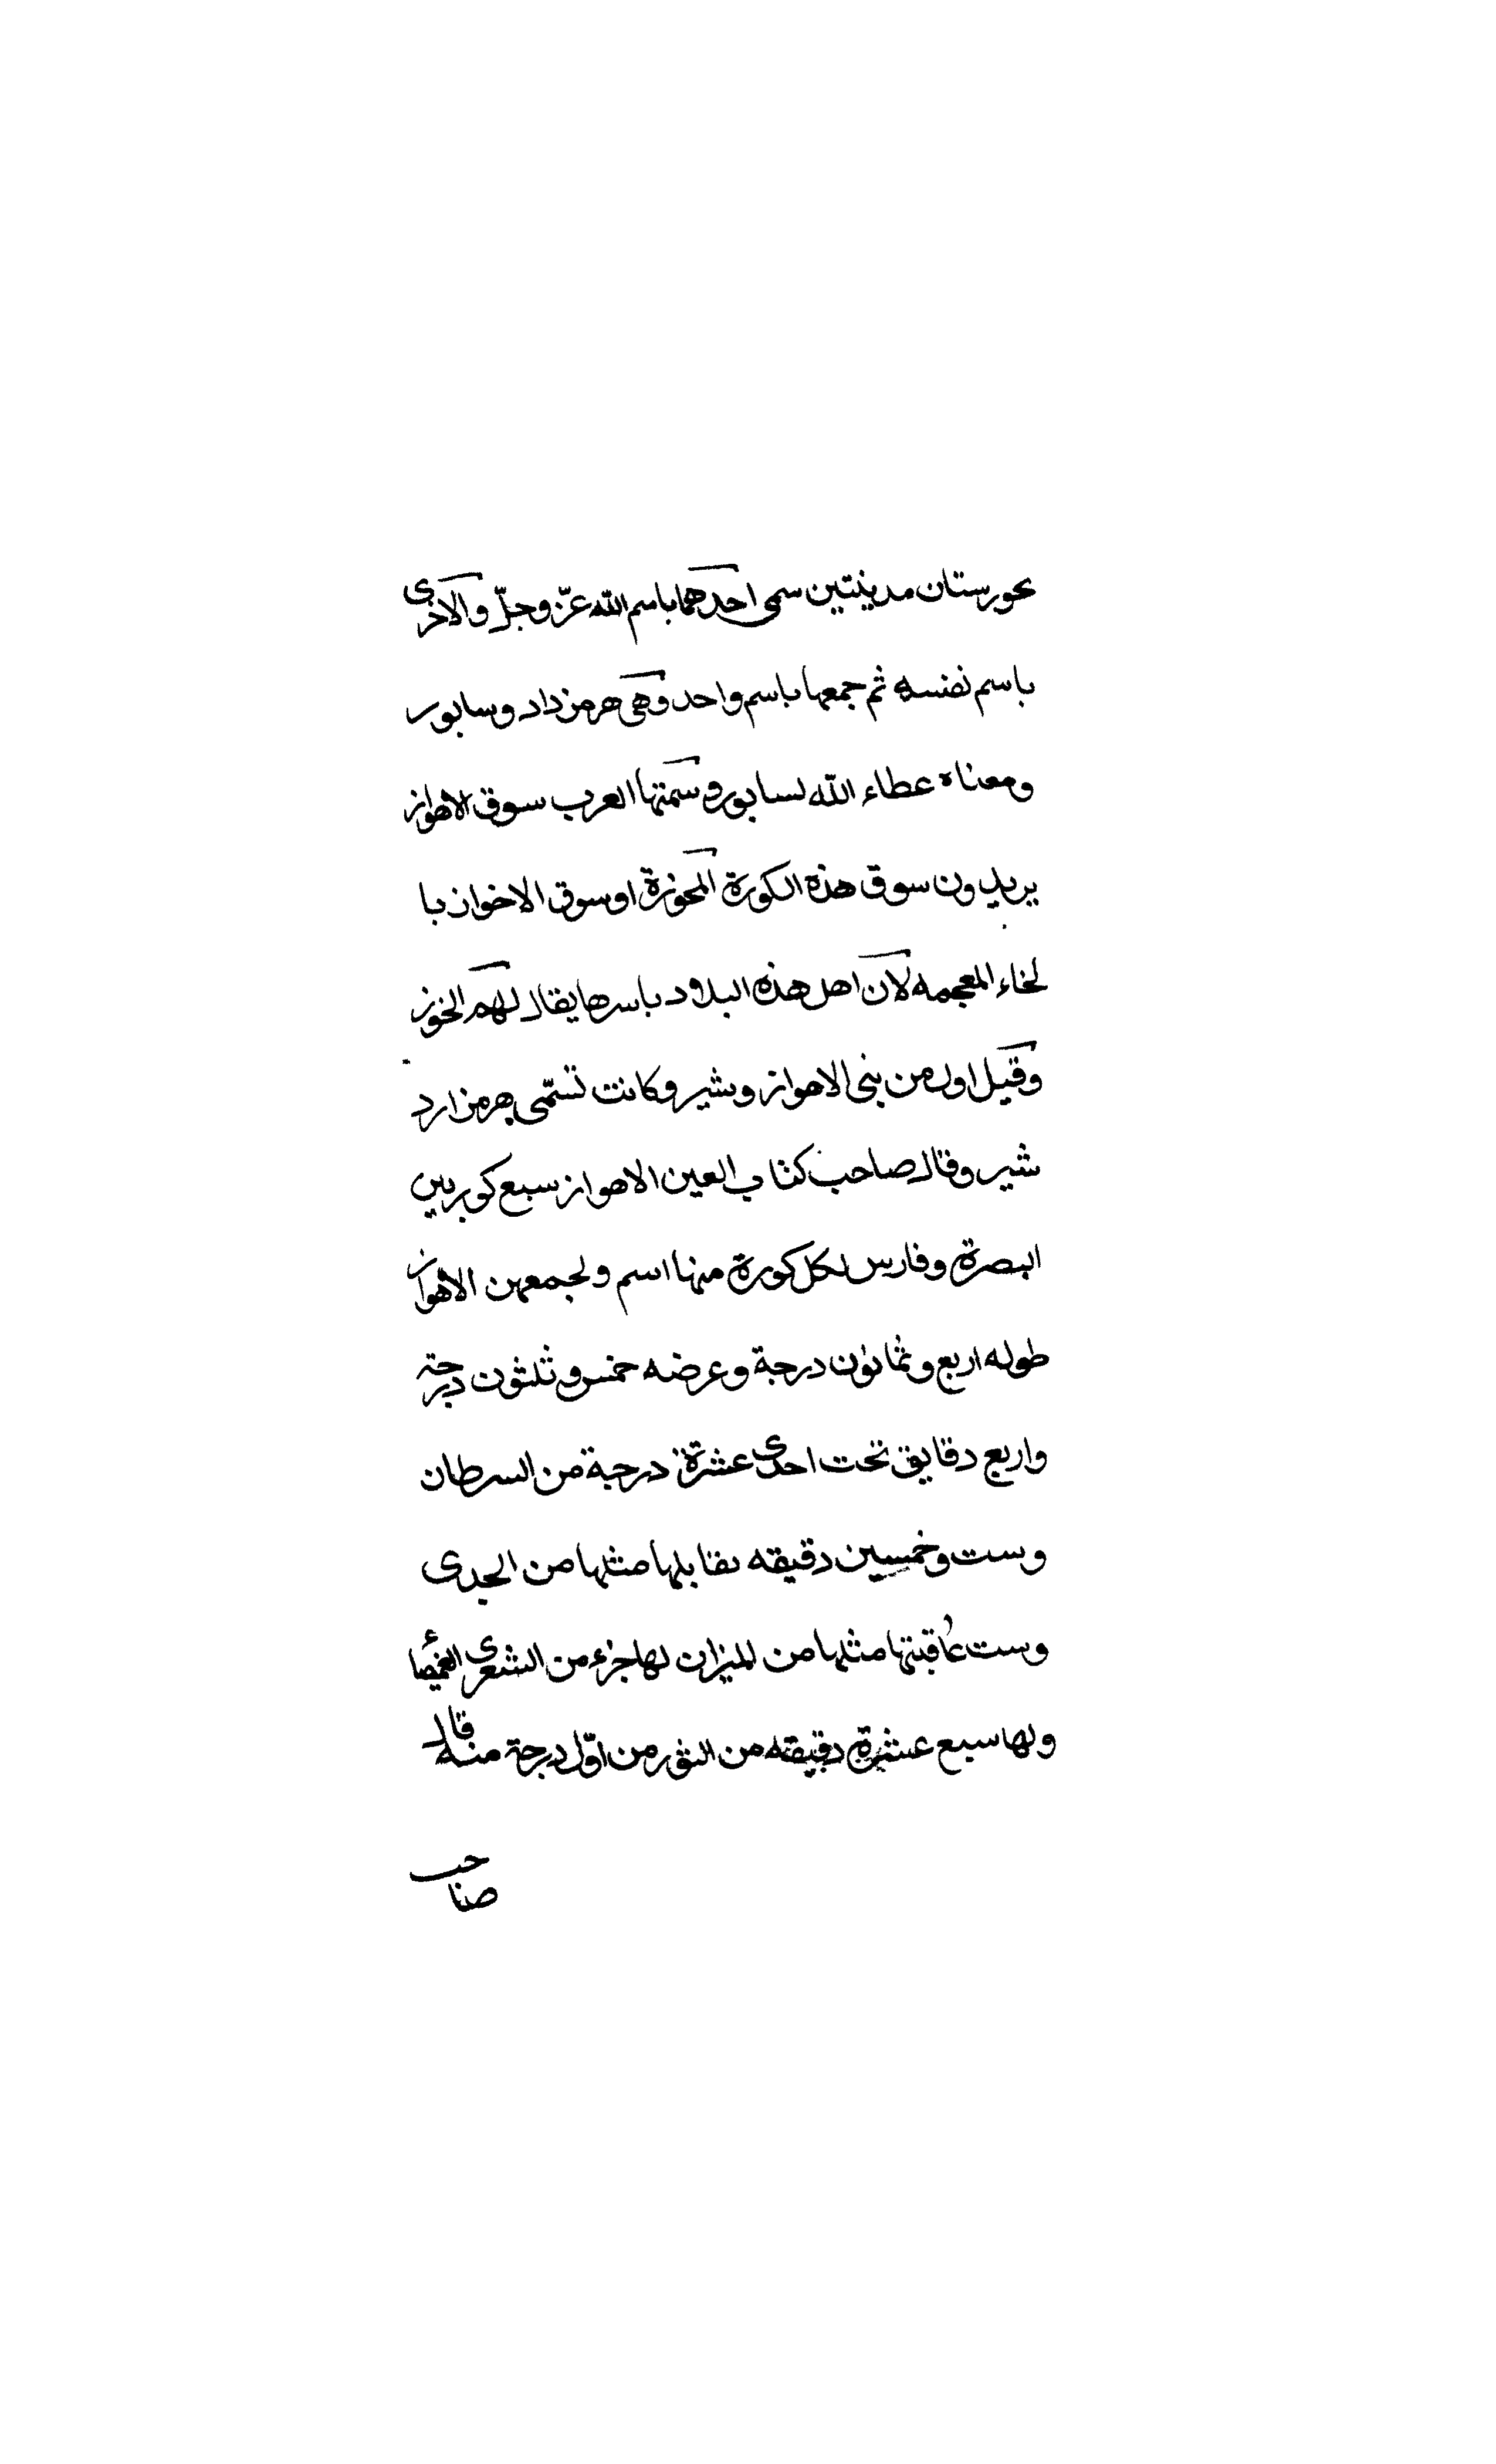 بحورستان مدينتين سمى احدهما باسم الله عزّ وجلّ والاخرى
باسم نفسه ثم جمعها باسم واحد وهى هرمزداد وسابور
ومعناه عطاء الله لسابور وسمتها العرب سوق الاهواز
يريدون سوق هذه الكورة المحوزة او سوق الاخواز با
لخاء المعجمه لان اهل هذه البلاد باسرها يقال لهم الخوز
وقيل اول من بنى الاهواز وشير وكانت تسمّى هرمز ارد
شير وقال صاحب كتاب العين الاهواز سبع كور بين
البصرة وفارس لكل كورة منها اسم ولجمعهن الاهواز
طوله اربع وثمانون درجة وعرضه خمس وثلثون درجة
واربع دقايق تحت احدى عشرة درجة من السرطان
وست وخمسين دقيقه يقابلها مثلها من الجدى
وست عاقبتها مثلها من الميزان لها جزء من الشعرى الغميصاء
ولها سبع عشرة دقيقه من الثور من اوّل درجة منه قال
صاحب